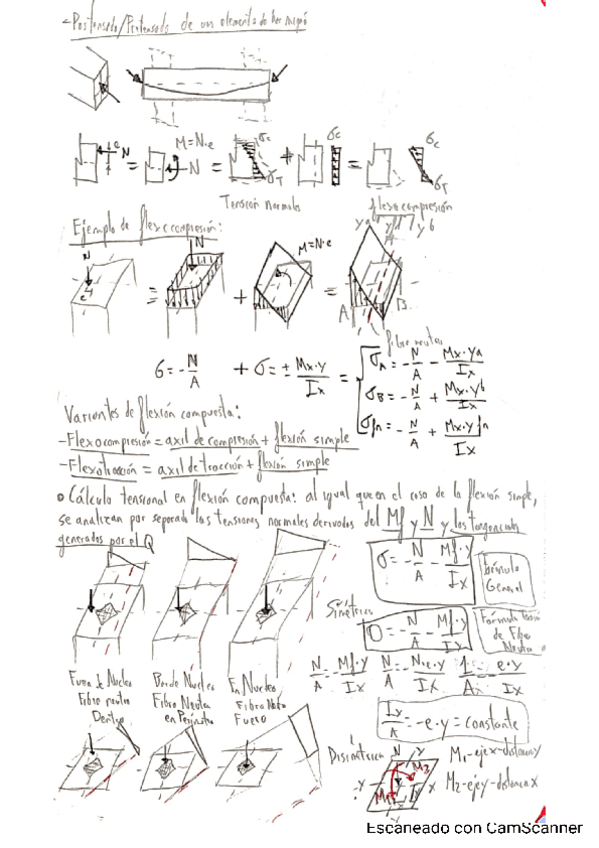 -Postensado/Pretensado de un elemento de hormigó
e N = M=N·e N = σc σT + σc = σc σT
Tensión normales
flexocompresión
Ejemplo de flexocompresión:
ya yb
N e = N + M=N·e = A B
fibra neutra
σ=-N/A + σ=± Mx·y/Ix =
σA=-N/A - Mx·ya/Ix
σB=-N/A + Mx·yb/Ix
σfn=-N/A + Mx·yfn/Ix
Variantes de flexión compuesta:
-Flexocompresión = axil de compresión + flexión simple
-Flexotracción = axil de tracción + flexión simple
Cálculo tensional en flexión compuesta: al igual que en el caso de la flexión simple,
se analizan por separado las tensiones normales derivados del Mf y N y las tangenciales
generados por el Q
σ=-N/A - Mf·y/Ix
Fórmula
General
Simétrica
0=-N/A - Mf·y/Ix
Fórmula
de Fibra
Neutra
N/A = Mf·y/Ix N/A = -N·e·y/Ix 1/A = e·y/Ix
Fuera de Nucleo
Fibra neutra
Dentro
Borde Nucleo
Fibra Neutra
en Perímetro
En Nucleo
Fibra Neutra
Fuera
Ix/A = -e·y = constante
Disimétrica
N y M2 M1 x -y -x
M1-eje x-distancia y
M2-eje y-distancia x
Escaneado con CamScanner